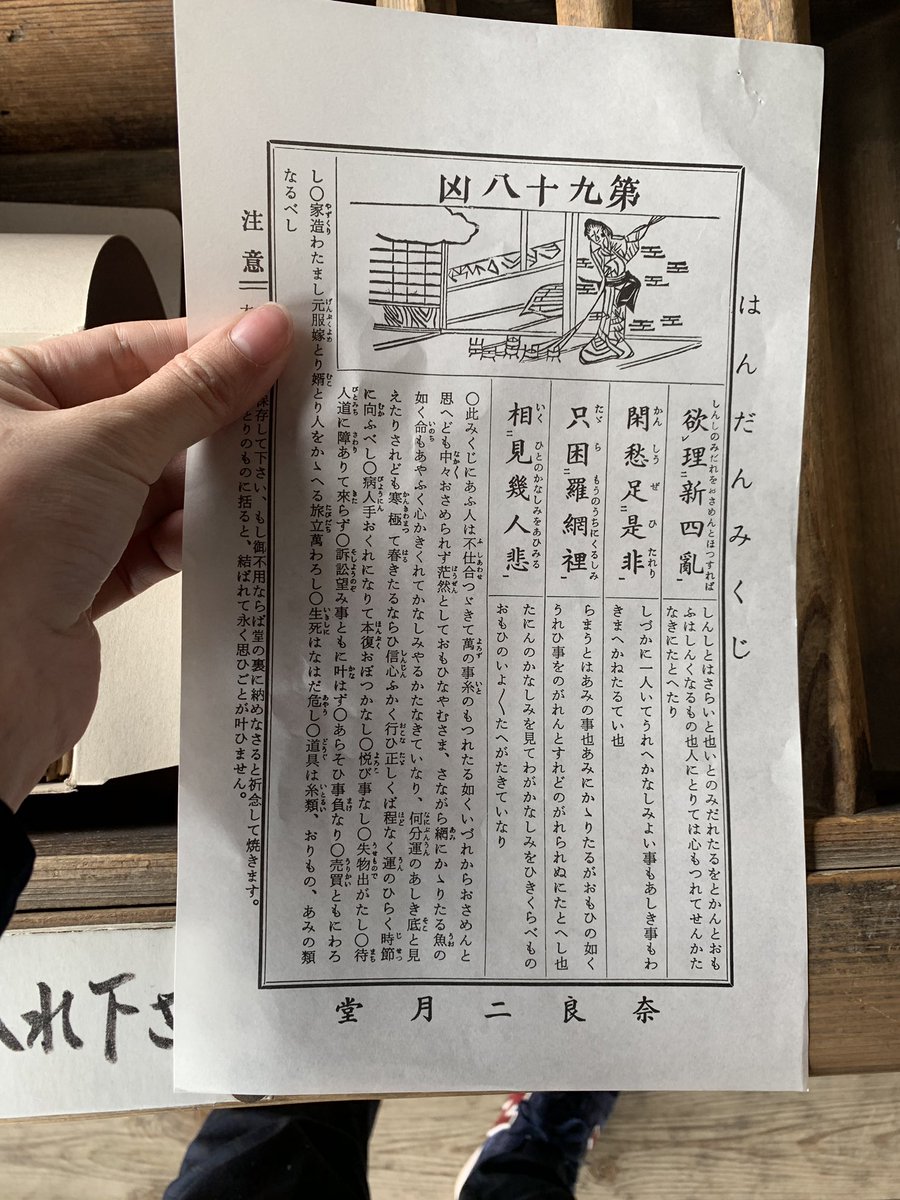 はんだんみくじ
第九十八凶
欲理新四亂
しんしのみだれをおさめんとほつすれば
閑愁足是非
かんしうぜひたれり
只困羅網裡
たゞらもうのうちにくるしみ
相見幾人悲
いくひとのかなしみをあひみる
しんしとはさらいと也いとのみだれたるをとかんとおも
ふはしんくなるもの也人にとりては心もつれてせんかた
なきにたとへたり
しづかに一人いてうれへかなしみよい事もあしき事もわ
きまへかねたるてい也
らまうとはあみの事也あみにかゝりたるがおもひの如く
うれひ事をのがれんとすれどのがれられぬにたとへし也
たにんのかなしみを見てわがかなしみをひきくらべもの
おもひのいよ〳〵たへがたきていなり
〇此みくじにあふ人は不仕合つゞきて萬の事糸のもつれたる如くいづれからおさめんと
思へども中々おさめられず茫然としておもひなやむさま、さながら網にかゝりたる魚の
如く命もあやふく心かきくれてかなしみやるかたなきていなり、何分運のあしき底と見
えたりされども寒極て春きたるならひ信心ふかく行ひ正しくば程なく運のひらく時節
に向ふべし〇病人手おくれになりて本復おぼつかなし〇悦び事なし〇失物出がたし〇待
人道に障ありて來らず〇訴訟望み事ともに叶はず〇あらそひ事負なり〇売買ともにわろ
し〇家造わたまし元服嫁とり婿とり人をかゝへる旅立萬わろし〇生死はなはだ危し〇道具は糸類、おりもの、あみの類
なるべし
注意
保存して下さい、もし御不用ならば堂の裏に納めなさると祈念して焼きます。
とりのものに括ると、結ばれて永く思ひごとが叶ひません。
奈良二月堂
れ下さ